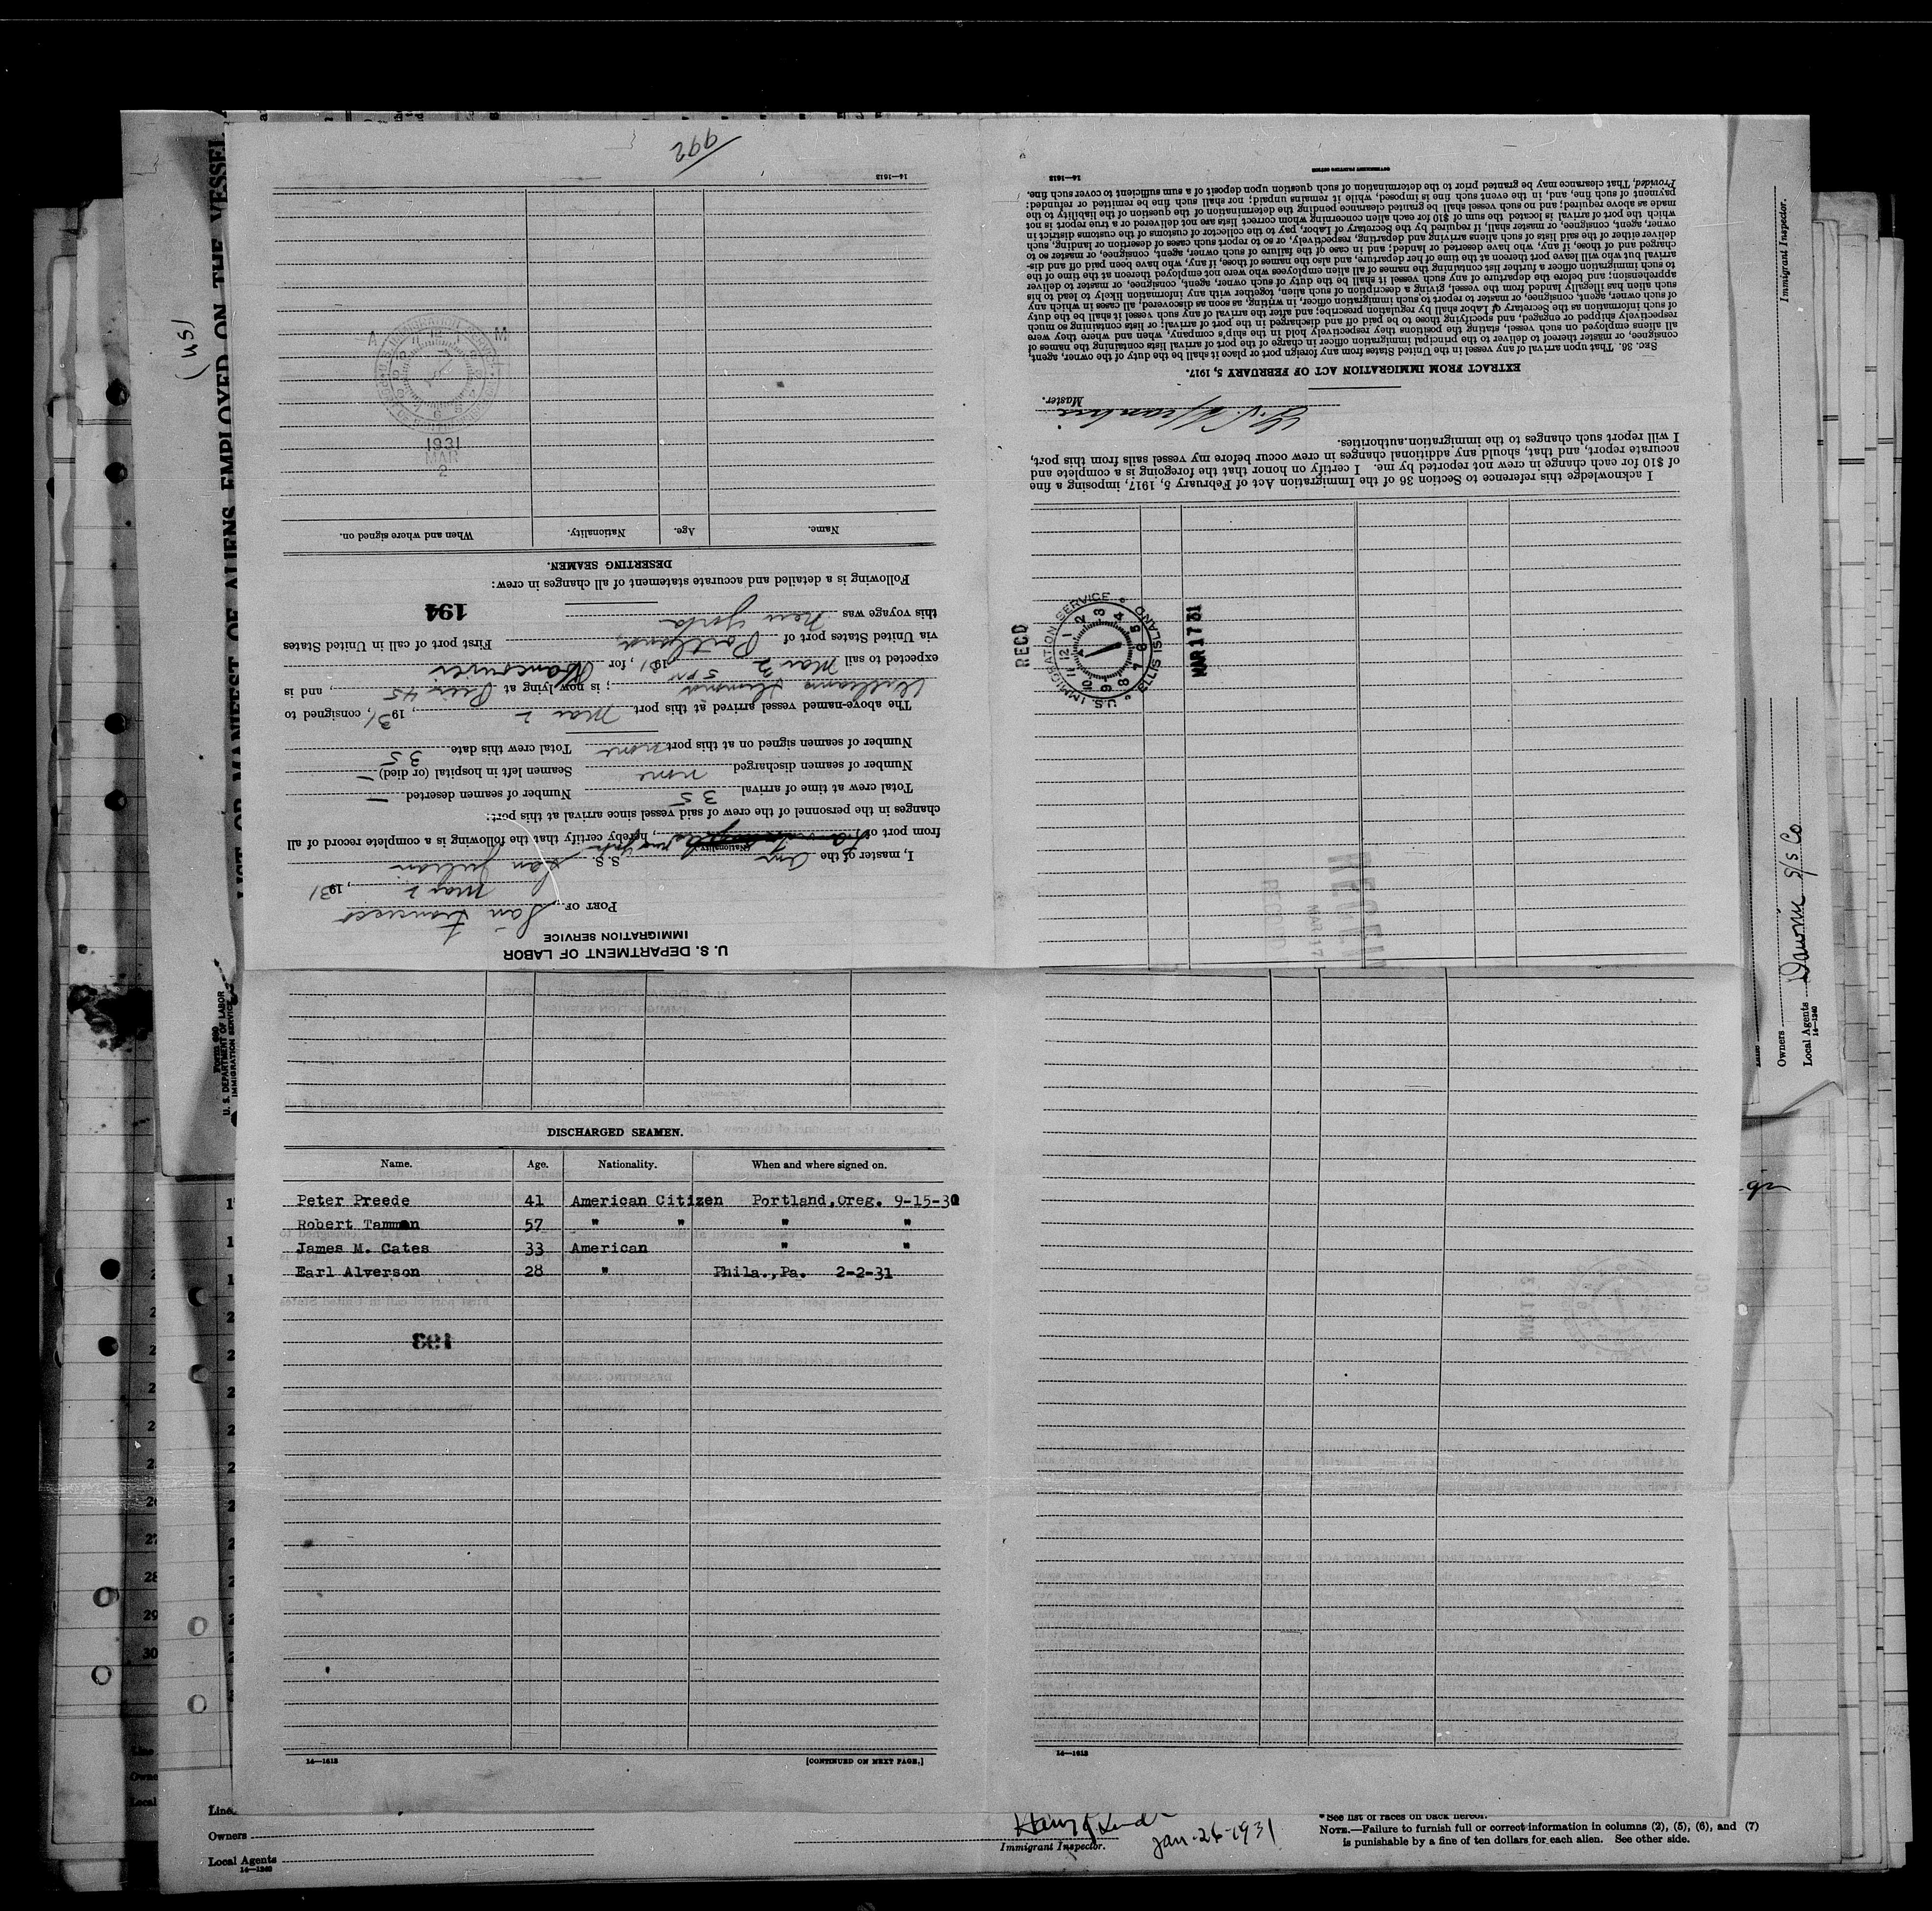 LIST OR MANIFEST OF ALIENS EMPLOYED ON THE VESSEL
(us)
Form 680
U. S. DEPARTMENT OF LABOR
IMMIGRATION SERVICE
992
U. S. DEPARTMENT OF LABOR
IMMIGRATION SERVICE
PORT OF San Francisco
Mar 2, 1931
I, master of the Am S. S. San Julian
(Nationality)
from port of, hereby certify that the following is a complete record of all
changes in the personnel of the crew of said vessel since arrival at this port:
Total crew at time of arrival 35 Number of seamen deserted —
Number of seamen discharged none Seamen left in hospital (or died) —
Number of seamen signed on at this port none Total crew this date 35
The above-named vessel arrived at this port Mar 2, 1931, consigned to
Williams Dimond; is now lying at Pier 45, and is
5 PM
expected to sail Mar 2 1931, for Vancouver
via United States port of Portland First port of call in United States
this voyage was New York
194
Following is a detailed and accurate statement of all changes in crew:
DESERTING SEAMEN.
Name. Age. Nationality. When and where signed on.
2
MAR
1931
A M
14—1613
RECD
U.S. IMMIGRATION SERVICE
ELLIS ISLAND
12 1 2 3 4 5 6 7 8 9 10 11
MAR 17 31
RECD
MAR 17
I acknowledge this reference to Section 36 of the Immigration Act of February 5, 1917, imposing a fine
of $10 for each change in crew not reported by me. I certify on honor that the foregoing is a complete and
accurate report, and that, should any additional changes in crew occur before my vessel sails from this port,
I will report such changes to the immigration authorities.
Master.
EXTRACT FROM IMMIGRATION ACT OF FEBRUARY 5, 1917.
SEC. 36. That upon arrival of any vessel in the United States from any foreign port or place it shall be the duty of the owner, agent,
consignee, or master thereof to deliver to the principal immigration officer in charge of the port of arrival lists containing the names of
all aliens employed on such vessel, stating the positions they respectively hold in the ship's company, when and where they were
respectively shipped or engaged, and specifying those to be paid off and discharged in the port of arrival; or lists containing so much
of such information as the Secretary of Labor shall by regulation prescribe; and after the arrival of any such vessel it shall be the duty
of such owner, agent, consignee, or master to report to such immigration officer, in writing, as soon as discovered, all cases in which any
such alien has illegally landed from the vessel, giving a description of such alien, together with any information likely to lead to his
apprehension; and before the departure of any such vessel it shall be the duty of such owner, agent, consignee, or master to deliver
to such immigration officer a further list containing the names of all alien employees who were not employed thereon at the time of the
arrival but who will leave port thereon at the time of her departure, and also the names of those, if any, who have been paid off and dis-
charged and of those, if any, who have deserted or landed; and in case of the failure of such owner, agent, consignee, or master so to
deliver either of the said lists of such aliens arriving and departing, respectively, or so to report such cases of desertion or landing, such
owner, agent, consignee, or master shall, if required by the Secretary of Labor, pay to the collector of customs of the customs district in
which the port of arrival is located the sum of $10 for each alien concerning whom correct lists are not delivered or a true report is not
made as above required; and no such vessel shall be granted clearance pending the determination of the question of the liability to the
payment of such fine, and, in the event such fine is imposed, while it remains unpaid; nor shall such fine be remitted or refunded:
Provided, That clearance may be granted prior to the determination of such question upon deposit of a sum sufficient to cover such fine.
14—1613
GOVERNMENT PRINTING OFFICE
Immigrant Inspector.
Owners
Local Agents Daworic S/S Co
14—1240
DISCHARGED SEAMEN.
Name. Age. Nationality. When and where signed on.
Peter Preede 41 American Citizen Portland,Oreg. 9-15-30
Robert Tamman 57 " " " "
James M. Cates 33 American " "
Earl Alverson 28 " Phila.,Pa. 2-2-31
193
14—1613 [CONTINUED ON NEXT PAGE.]
14—1613
28
29
30
Line
Owners
Local Agents
14—1240
Jan-26-1931
Immigrant Inspector.
* See list of races on back hereof.
NOTE.—Failure to furnish full or correct information in columns (2), (5), (6), and (7)
is punishable by a fine of ten dollars for each alien. See other side.